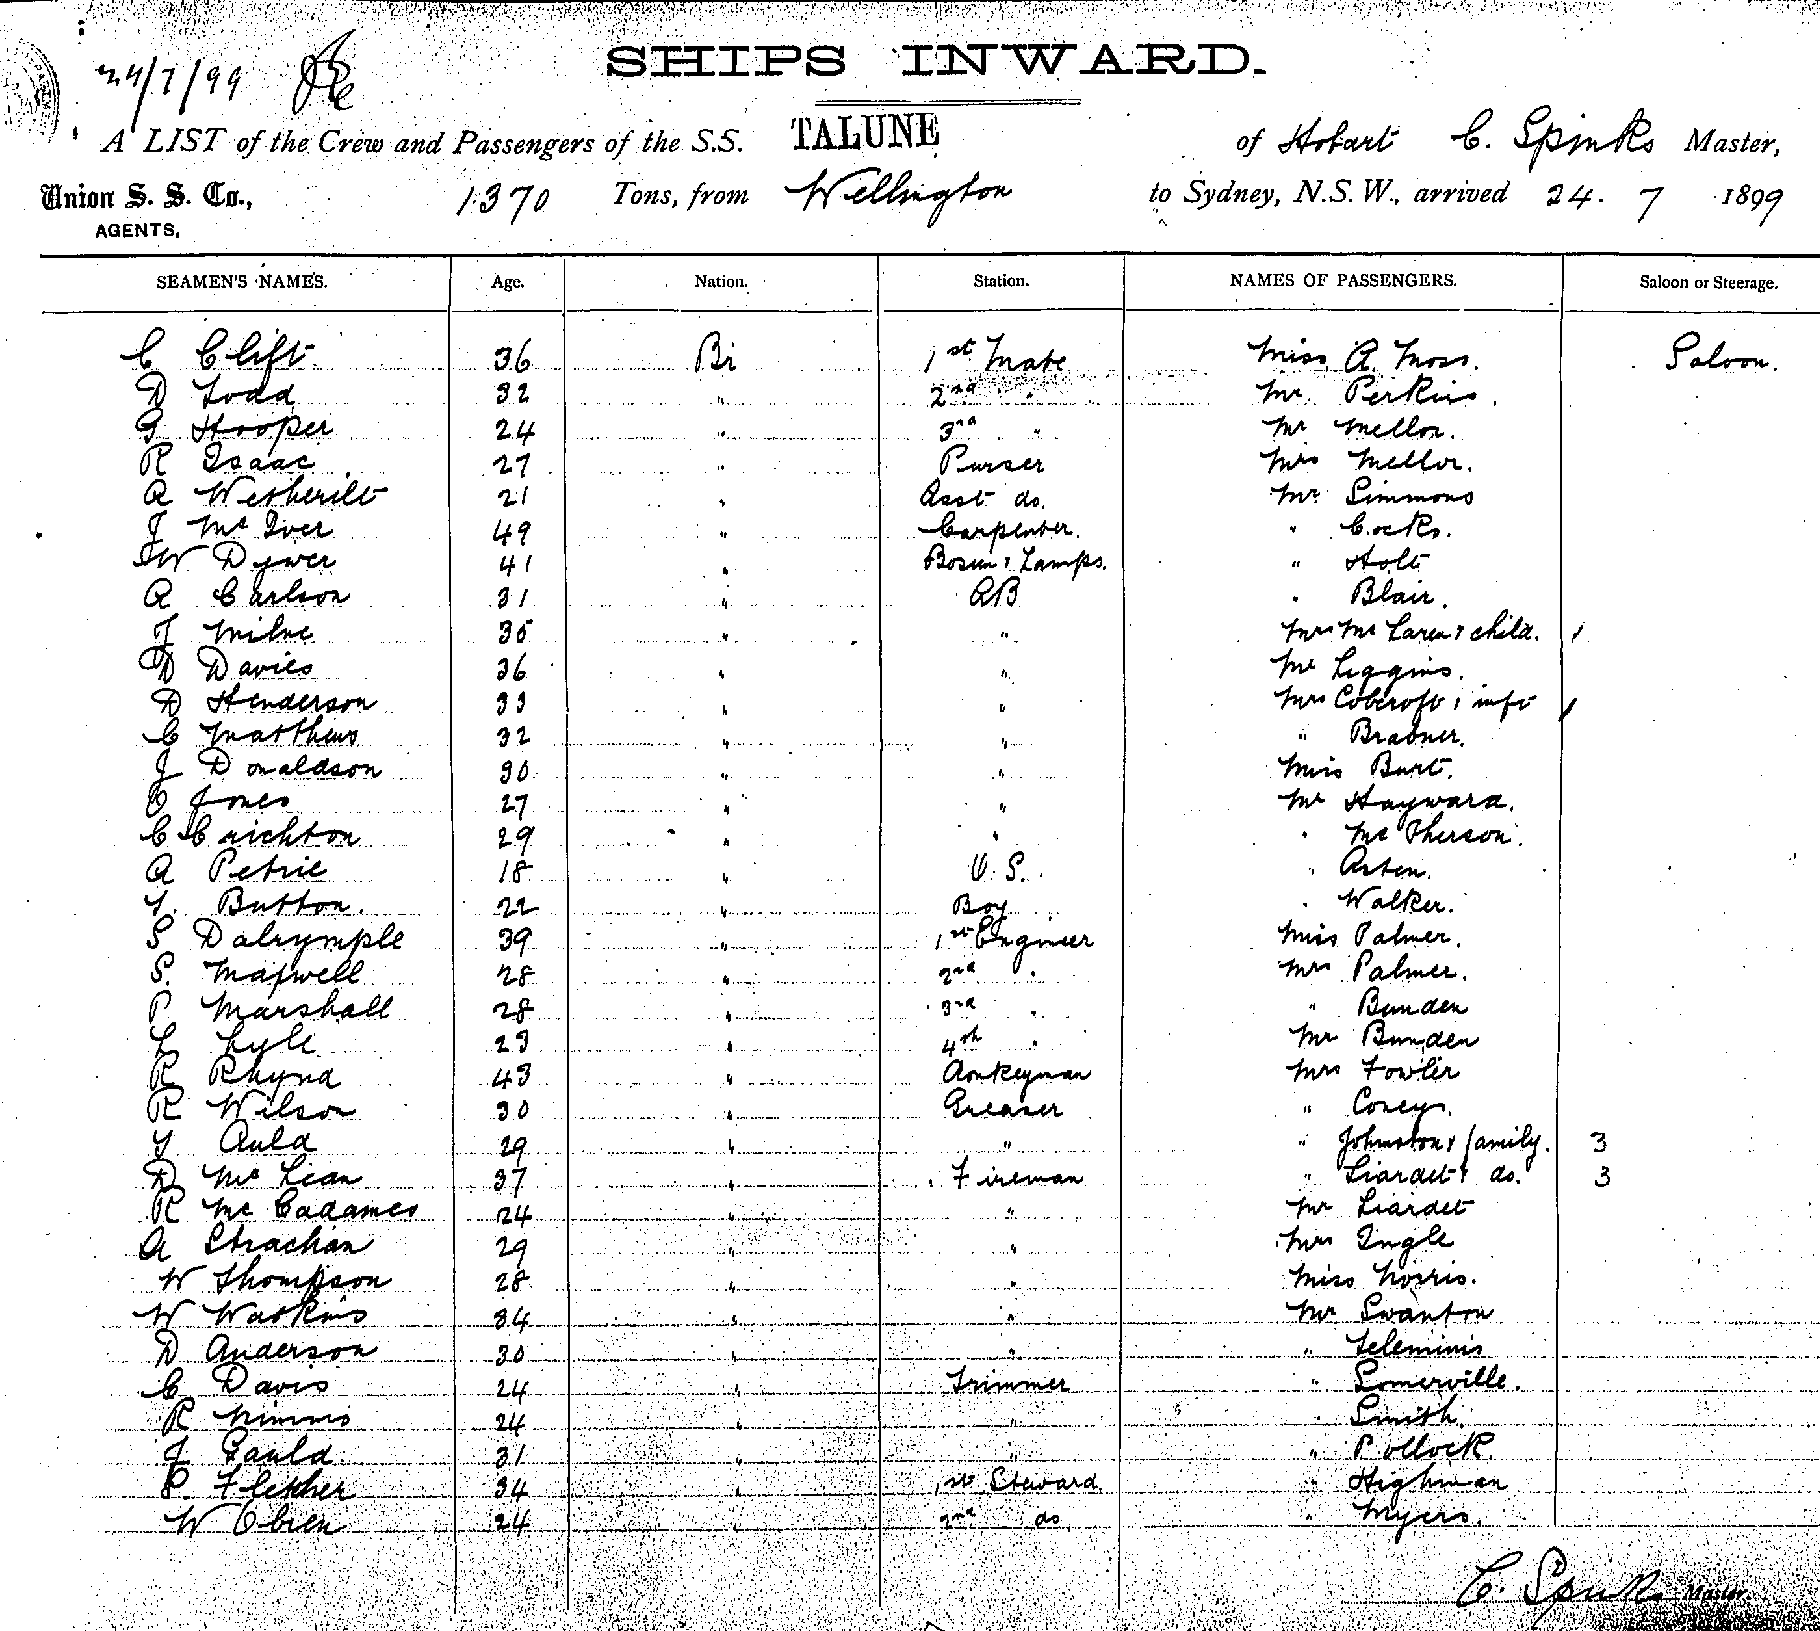 24/7/99
SHIPS INWARD.
A LIST of the Crew and Passengers of the S.S. TALUNE of Hobart C. Spinks Master,
Union S. S. Co., 1370 Tons, from Wellington to Sydney, N.S.W., arrived 24. 7 1899
AGENTS,
SEAMEN'S NAMES. Age. Nation. Station. NAMES OF PASSENGERS. Saloon or Steerage.
C Clift 36 Bi 1st Mate Miss A. Moss. Saloon.
D Todd 32 " 2nd " Mr. Perkins.
G Hooper 24 " 3rd " Mr Mellor.
R Isaac 27 " Purser Mrs Mellor.
A Wetherilt 21 " Asst do. Mr Simmons
J McIver 49 " Carpenter. " Cocks.
W Dywer 41 " Bosun & Lamps. " Holt
A Carlson 31 " AB " Blair.
J Milne 35 " " Mrs McLaren & child. 1
D Davies 36 " " Mr Liggins.
D Henderson 33 " " Mrs Cobcroft & inft 1
C Matthews 32 " " " Brabner.
J Donaldson 30 " " Miss Burt.
O Jones 27 " " Mr Hayward.
C Crichton 29 " " " McPherson.
A Petrie 18 " O.S. " Arten.
T. Button. 22 " Boy " Walker.
S Dalrymple 39 " 1st Engineer Miss Palmer.
S. Maxwell 28 " 2nd " Mrs Palmer.
P Marshall 28 " 3rd " " Bunden
L Lyle 23 " 4th " Mr Bunden
R Rhynd 43 " Donkeyman Mrs Fowler
R Wilson 30 " Greaser " Coneys.
T Auld 29 " " " Johnston & family. 3
D McLean 37 " Fireman " Liardet & do. 3
R McCadames 24 " " Mr Liardet
A Strachan 29 " " Mrs Ingle
W Thompson 28 " " Miss Norris.
W Watkins 34 " " Mr Swanton
D Anderson 30 " " " Teleminis
C Davis 24 " Trimmer " Somerville.
R Nimmo 24 " " " Smith.
J Gauld 31 " " " Pollock.
P. Fletcher 34 " 1st Steward " Highman
W Obrien 24 " 2nd do " Myers.
C. Spinks Master.